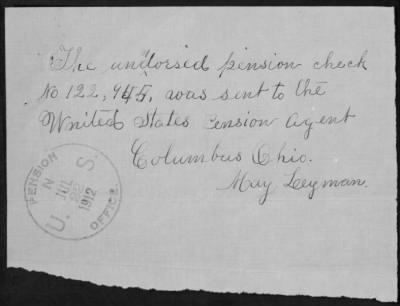 The undorsed pension check
No 122,945, was sent to the
United States Pension Agent
Columbus Ohio.
May Leyman.
U. S.
PENSION
OFFICE.
JUL
22
1912